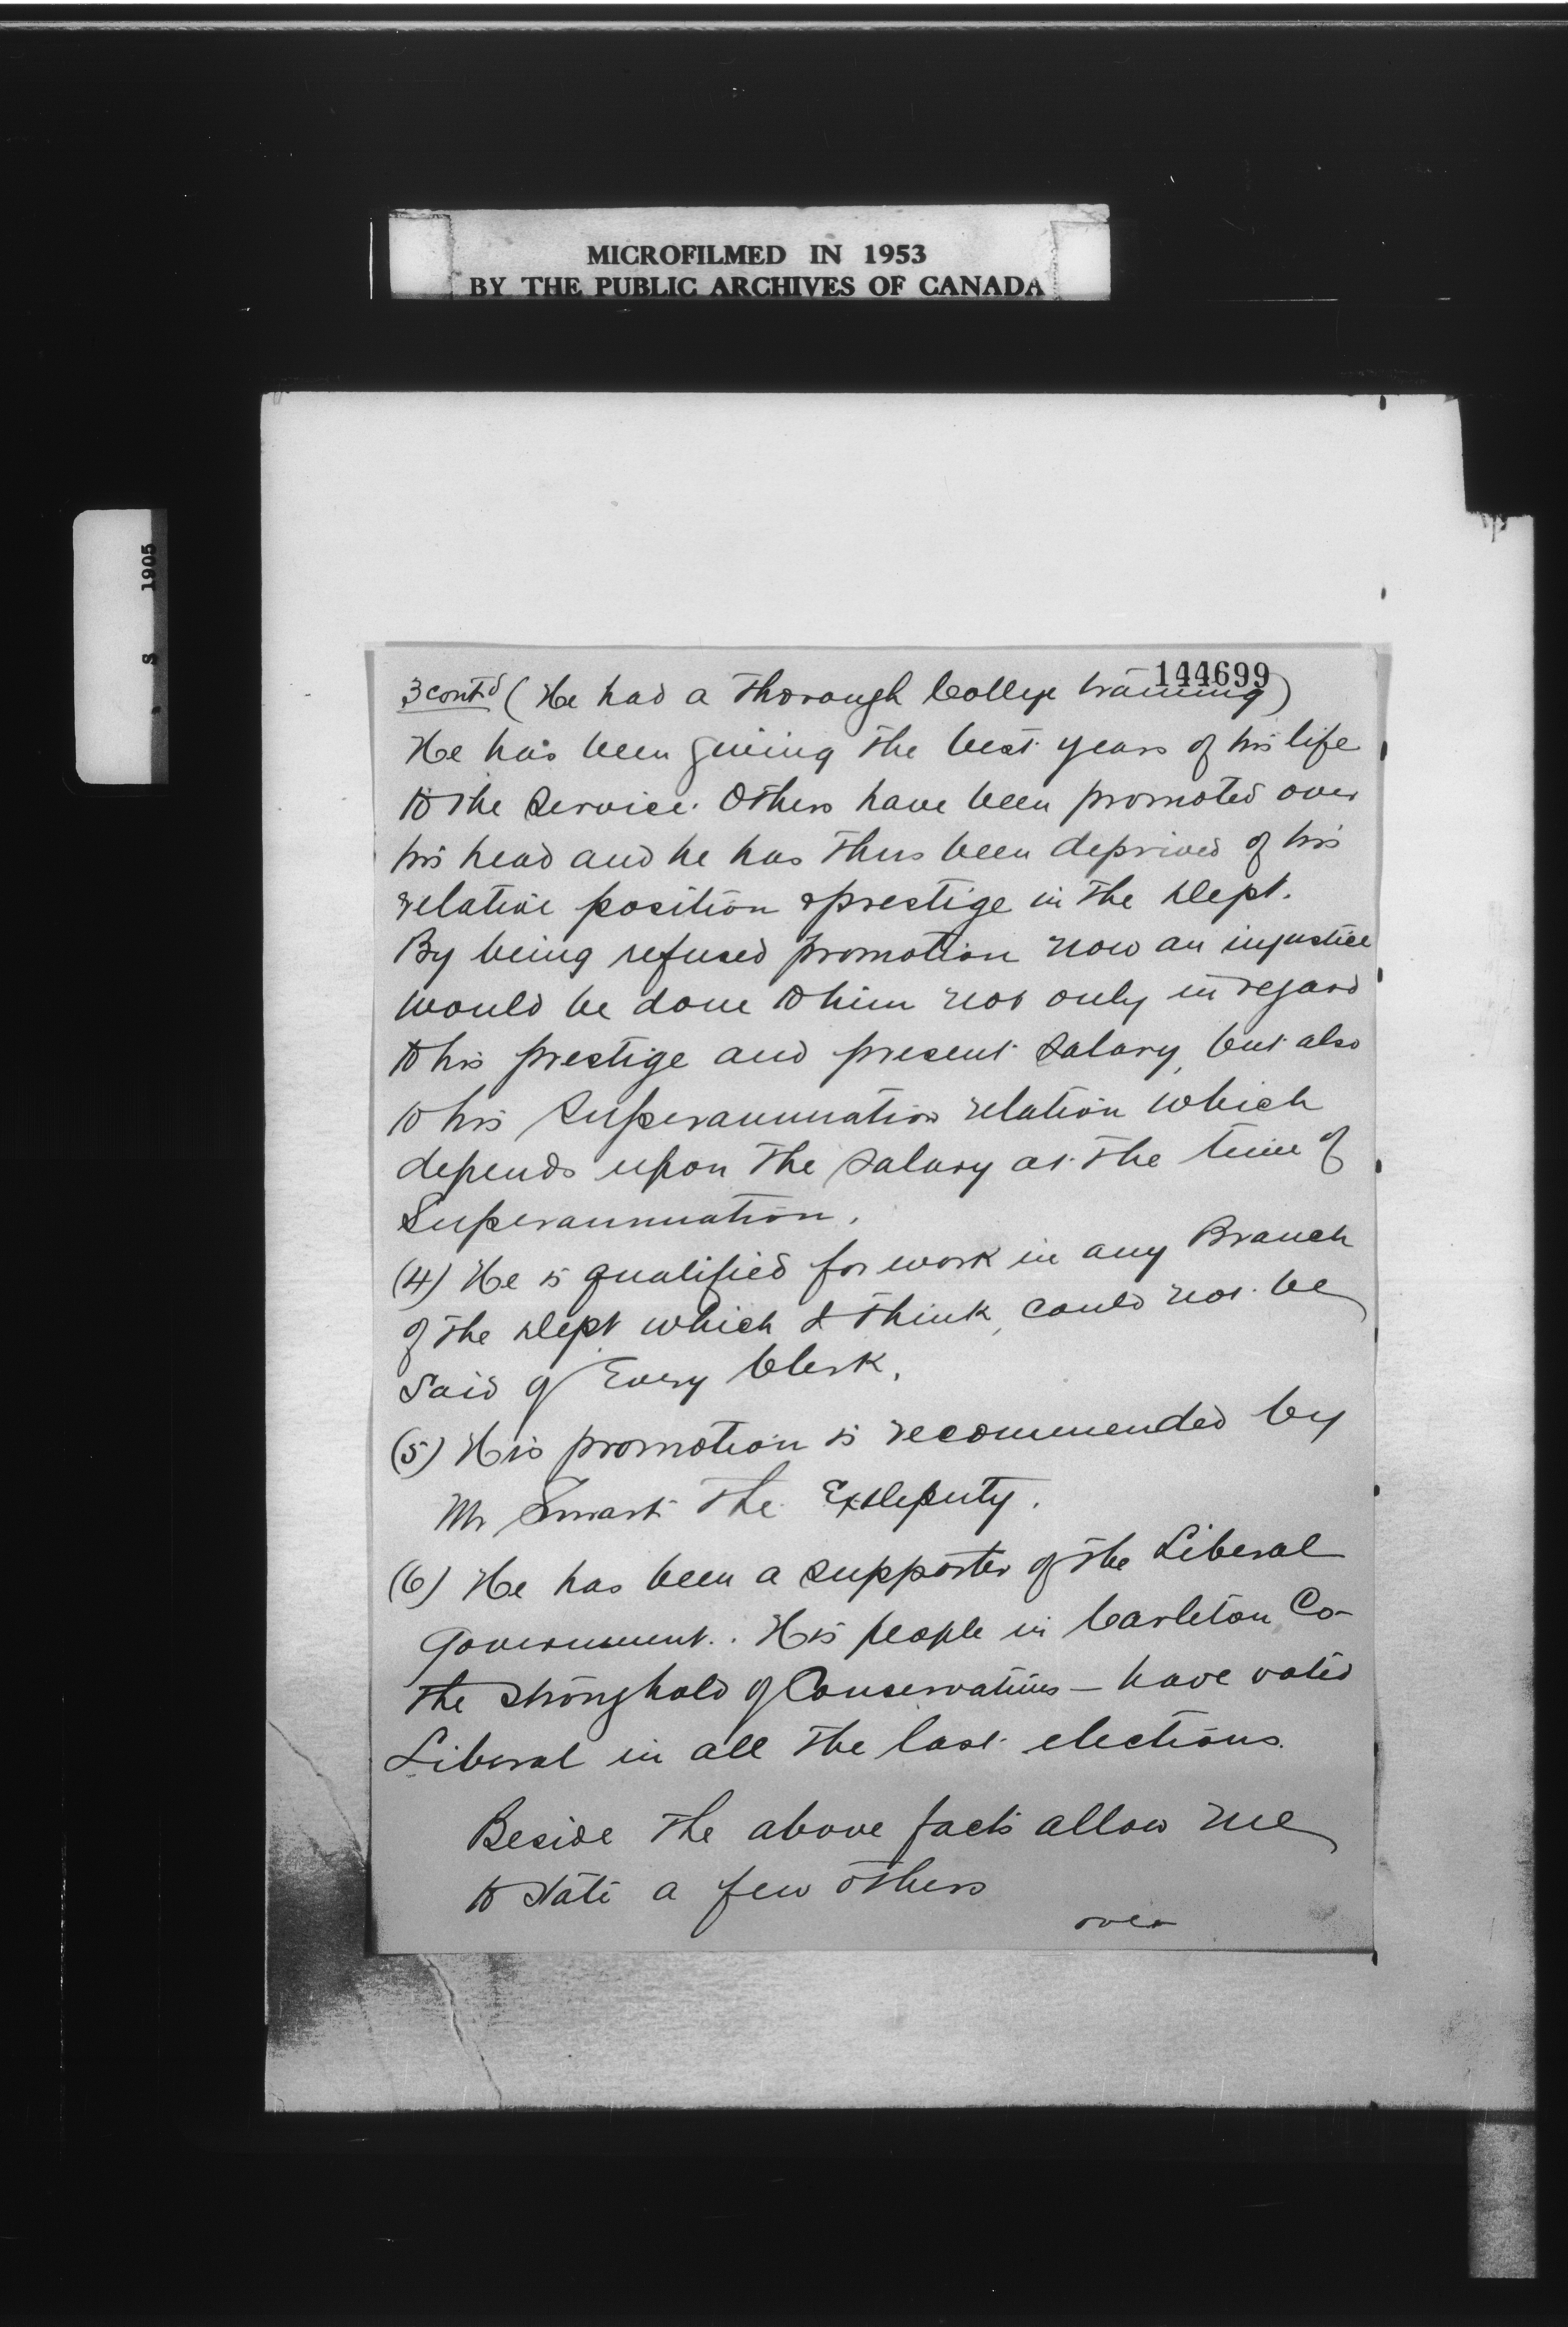 MICROFILMED IN 1953
BY THE PUBLIC ARCHIVES OF CANADA
S 1905
144699
3 contd (He had a thorough College training)
He has been giving the best years of his life
to the Service. Others have been promoted over
his head and he has thus been deprived of his
relative position & prestige in the Dept.
By being refused promotion now an injustice
would be done to him not only in regard
to his prestige and present salary, but also
to his Superannuation relation which
depends upon the salary at the time of
Superannuation.
(4) He is qualified for work in any Branch
of the Dept which I think, could not be
said of Every Clerk.
(5) His promotion is recommended by
Mr Smart the ExDeputy.
(6) He has been a supporter of the Liberal
Government. His people in Carleton Co-
the stronghold of Conservatives - have voted
Liberal in all the last elections.
Beside the above facts allow me
to state a few others
over